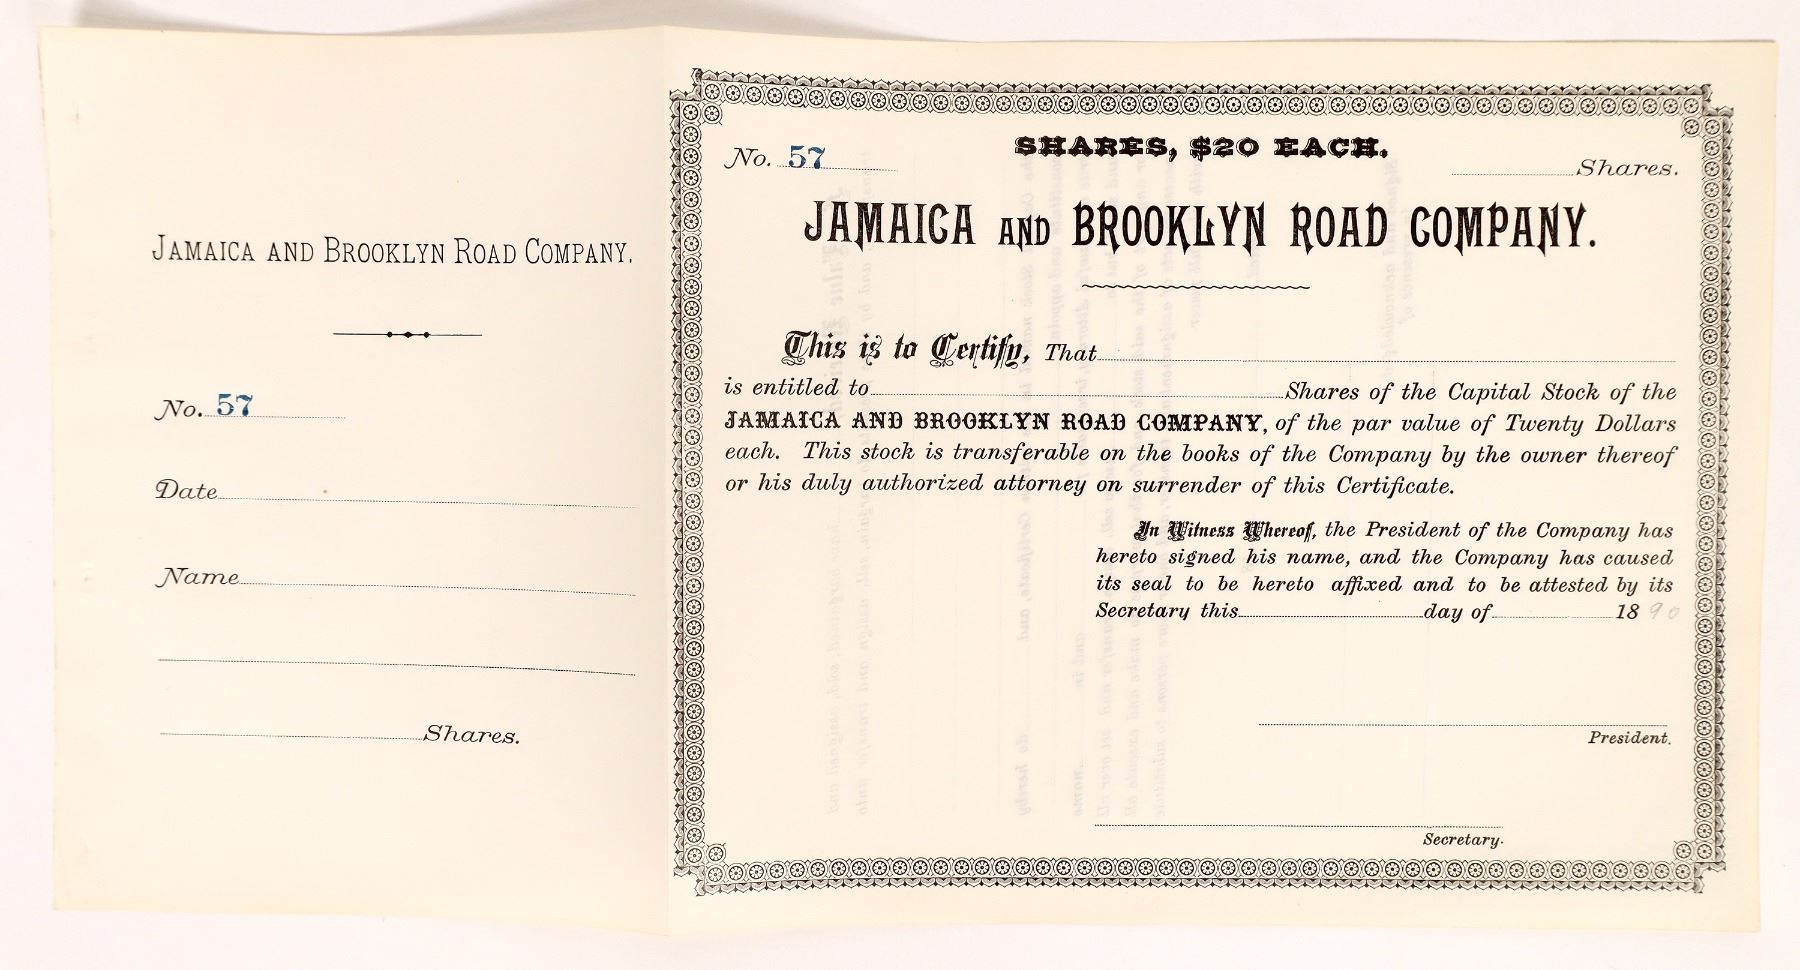 JAMAICA AND BROOKLYN ROAD COMPANY.
No. 57
Date
Name
Shares.
No. 57
SHARES, $20 EACH.
Shares.
JAMAICA AND BROOKLYN ROAD COMPANY.
This is to Certify, That
is entitled to Shares of the Capital Stock of the
JAMAICA AND BROOKLYN ROAD COMPANY, of the par value of Twenty Dollars
each. This stock is transferable on the books of the Company by the owner thereof
or his duly authorized attorney on surrender of this Certificate.
In Witness Whereof, the President of the Company has
hereto signed his name, and the Company has caused
its seal to be hereto affixed and to be attested by its
Secretary this day of 1890
President.
Secretary.